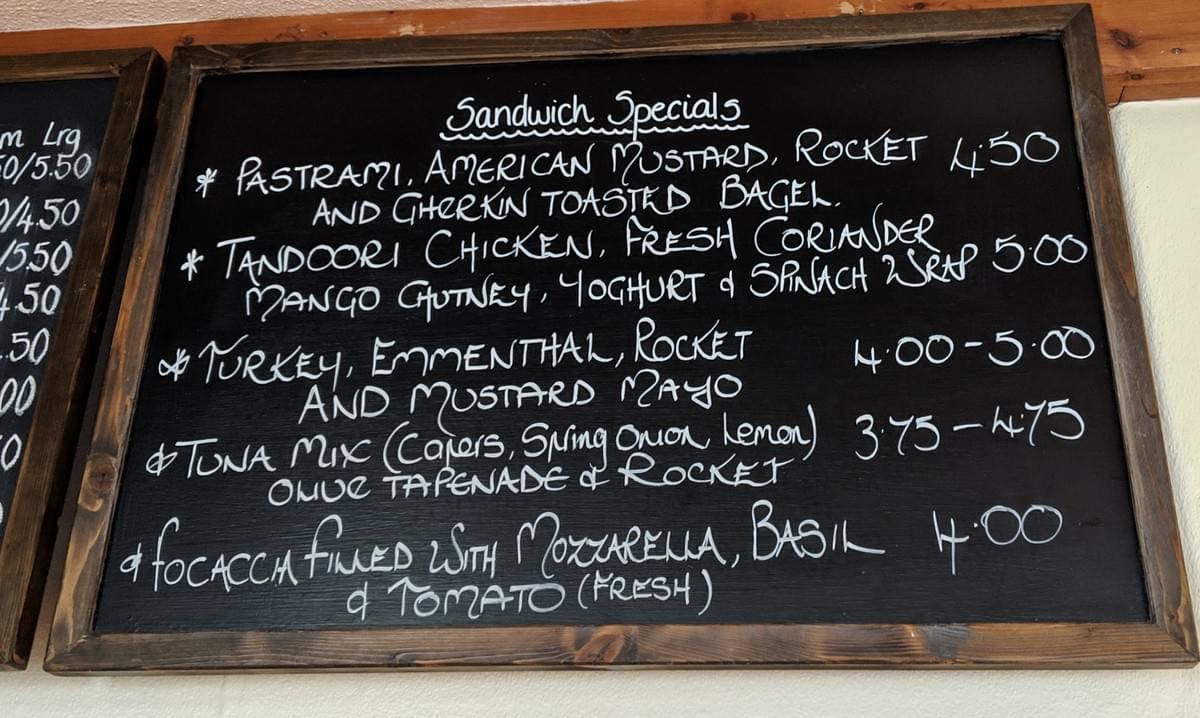 m Lrg
0/5.50
0/4.50
/5.50
4.50
.50
00
0
Sandwich Specials
* PASTRAMI, AMERICAN MUSTARD, ROCKET 4.50
AND GHERKIN TOASTED BAGEL.
* TANDOORI CHICKEN, FRESH CORIANDER
MANGO CHUTNEY, YOGHURT & SPINACH WRAP 5.00
* TURKEY, EMMENTHAL, ROCKET 4.00-5.00
AND MUSTARD MAYO
* TUNA MIX (Capers, Spring Onion, Lemon) 3.75-4.75
OLIVE TAPENADE & ROCKET
* FOCACCIA FILLED WITH MOZZARELLA, BASIL 4.00
& TOMATO (FRESH)